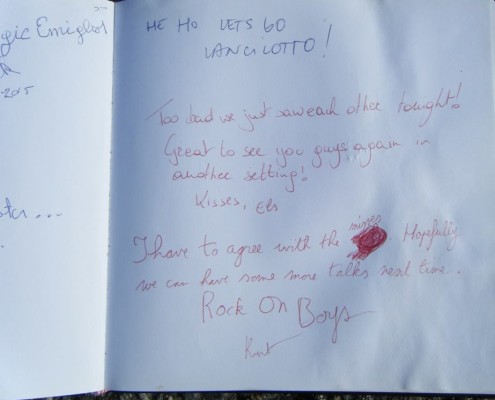 gic Emiglos
2015
HE HO LETS GO
LANCILOTTO!
Too bad we just saw each other tonight!
Great to see you guys again in
another setting!
Kisses, Els
I have to agree with the misses Hopefully
we can have some more talks next time.
Rock On Boys
Kurt